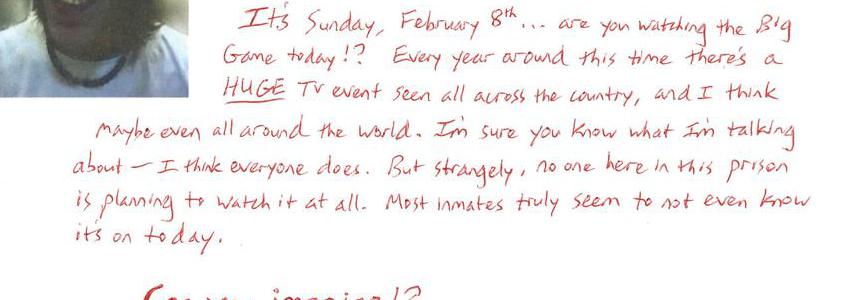 It's Sunday, February 8th... are you watching the Big
Game today!? Every year around this time there's a
HUGE TV event seen all across the country, and I think
maybe even all around the world. I'm sure you know what I'm talking
about — I think everyone does. But strangely, no one here in this prison
is planning to watch it at all. Most inmates truly seem to not even know
it's on today.
imagine!?